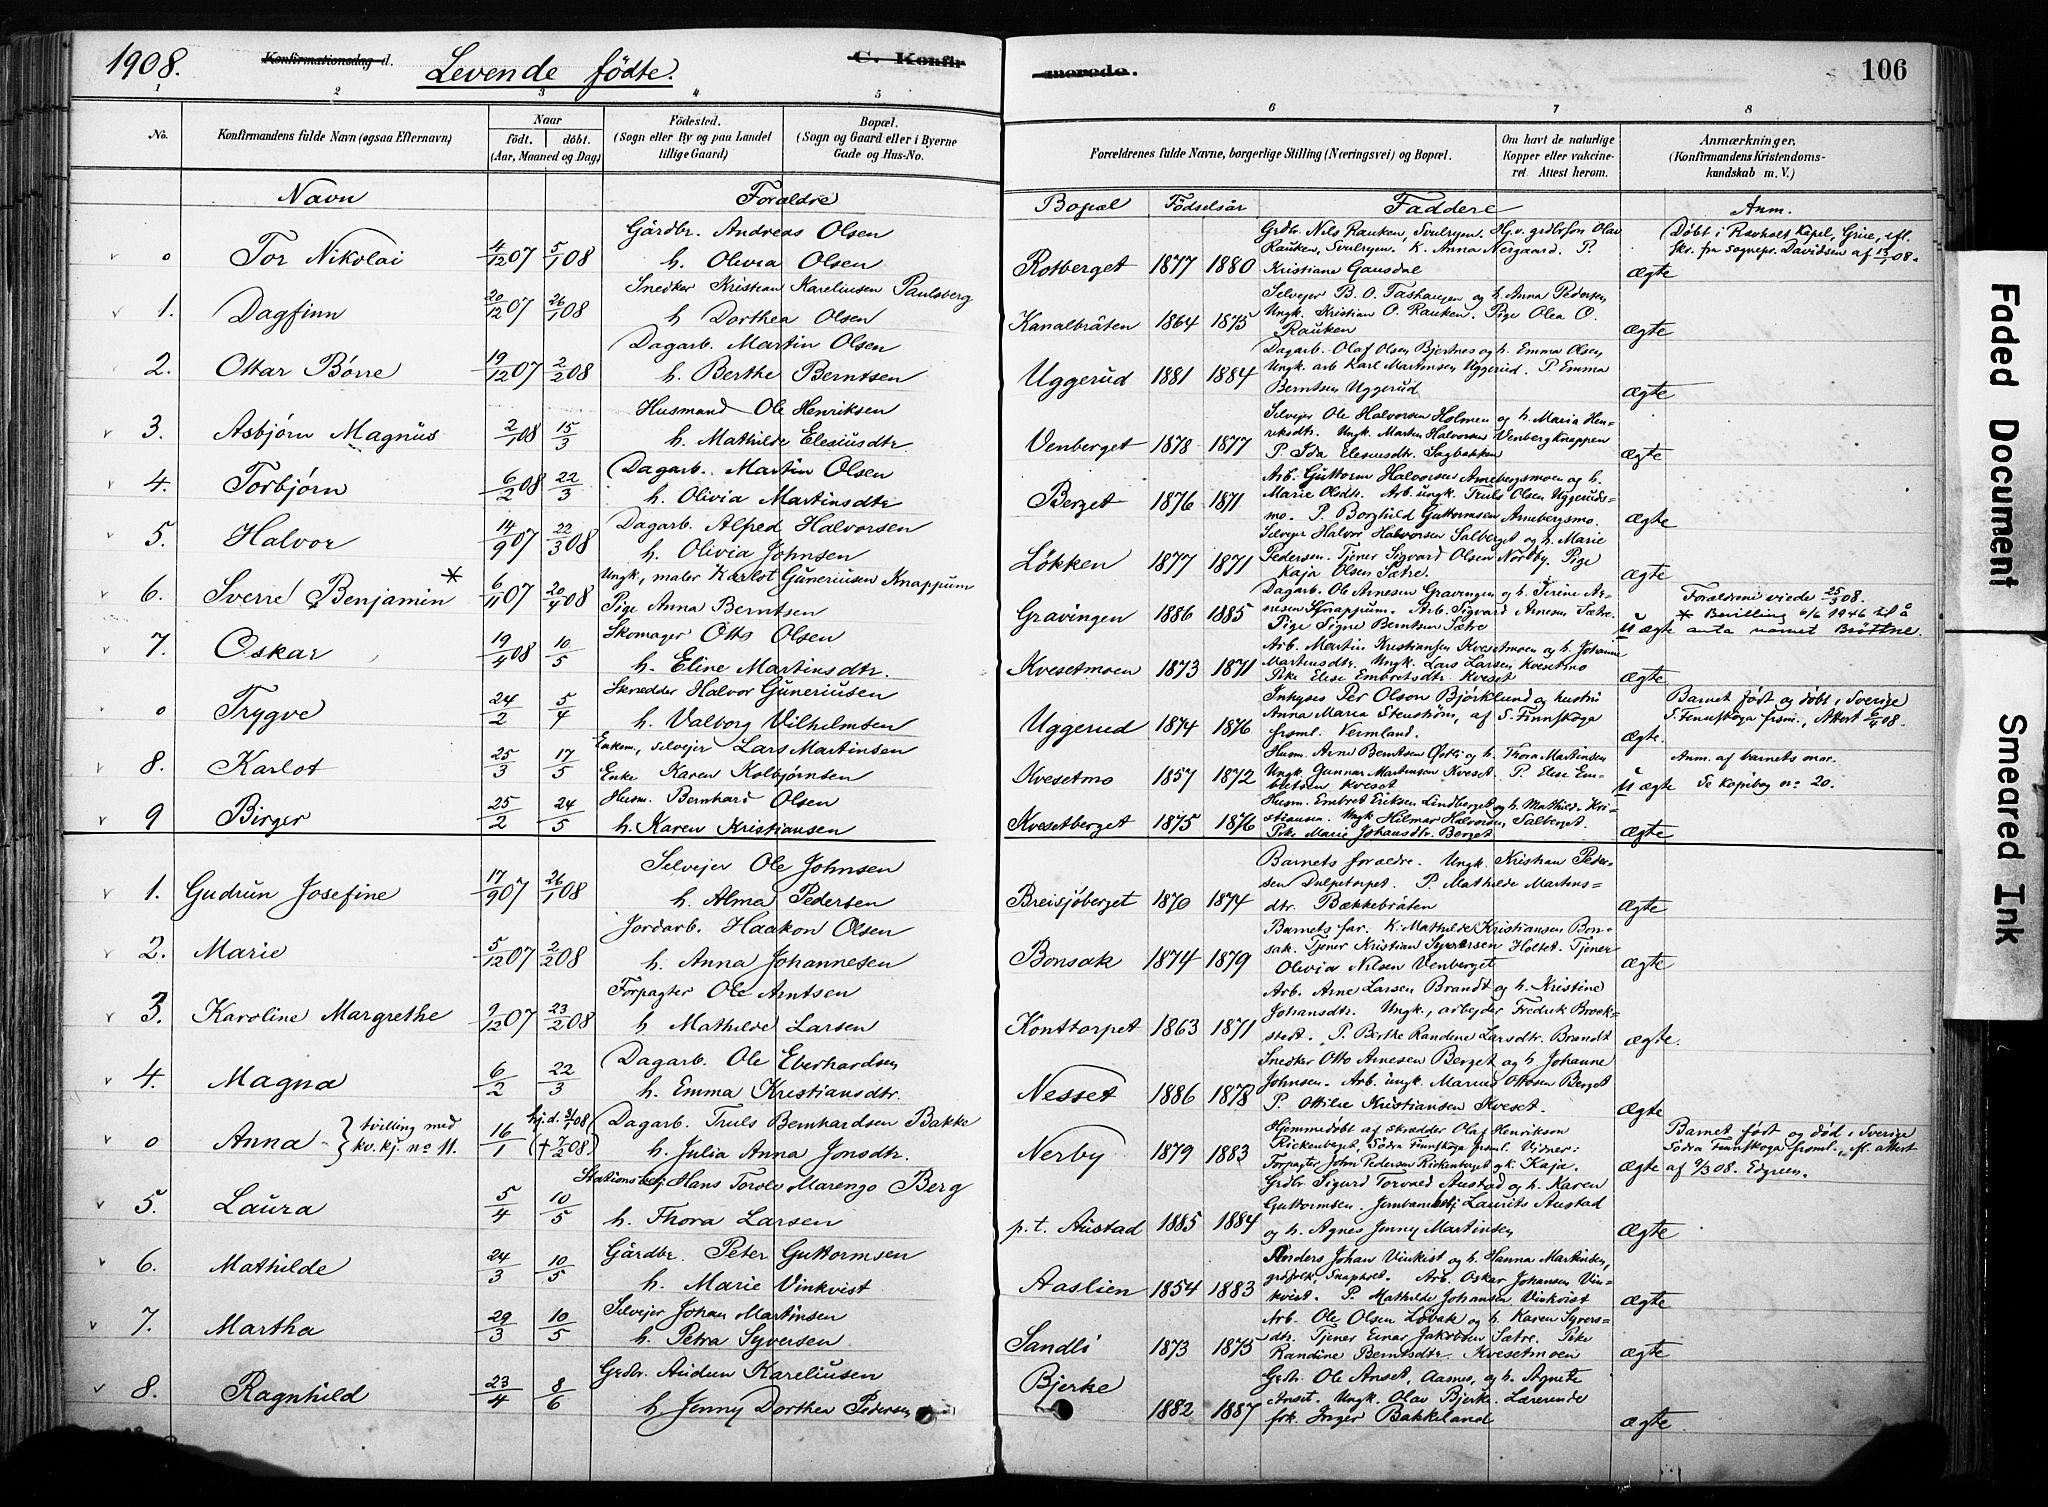 1908.
Konfirmationsdag d.
Levende fødte.
C. Konfir
merede.
106
1 2 3 4 5 6 7 8
No.
Konfirmandens fulde Navn (ogsaa Efternavn)
Naar
födt. döbt.
(Aar, Maaned og Dag)
Födested.
(Sogn eller By og paa Landet
tillige Gaard)
Bopæl.
(Sogn og Gaard eller i Byerne
Gade og Hus-No.
Forældrenes fulde Navne, borgerlige Stilling (Næringsvei) og Bopæl.
Om havt de naturlige
Kopper eller vakcine-
ret Attest herom.
Anmærkninger.
(Konfirmandens Kristendoms-
kundskab m. V.)
Navn Forældre Bopæl Fødselsår Faddere Anm.
Gårdbr. Andreas Olsen
o Tor Nikolai 4/12 07 5/1 08 h. Olivia Olsen Rotberget 1877 1880 ægte
Grdbr. Nils Rauken, Svulryen. Hj.v. grdbrsøn Olav
Rauken, Svulryen. K. Anna Nesgaard. P.
Kristiane Gausdal
Døbt i Revholt Kapel, Grue, efl.
skr. fra sognepr. Davidsen af 13/1 08.
Snedker Kristian Kareliusen Paulsberg
1. Dagfinn 20/12 07 26/1 08 h Dorthea Olsen Kanalbråten 1864 1875 ægte
Selvejer B. O. Tashaugen og h. Anna Pedersen
Ungk. Kristian O. Rauken. Pige Olea O.
Rauken
Dagarb. Martin Olsen
2. Ottar Børre 19/12 07 2/2 08 h. Berthe Berntsen Uggerud 1881 1884 ægte
Dagarb. Olaf Olsen Bjertnes og h. Emma Olsen
Ungk. arb Karl Martinsen Uggerud. P. Emma
Berntsen Uggerud
Husmand Ole Henriksen
3. Asbjørn Magnus 2/1 08 15/3 h. Mathilde Elesiusdtr Venberget 1878 1877 ægte
Selvejer Ole Halvorsen Holmen og h. Maria Hen-
riksdtr. Ungk. Martin Halvorsen Venbergknappen
P. Ida Elesiusdtr. Sagbakken
Dagarb. Martin Olsen
4. Torbjørn 6/2 08 22/3 h. Olivia Martinsdtr Berget 1876 1871 ægte
Arb. Guttorm Halvorsen Arnebergsmoen og h.
Marie Olsdtr. Arb. ungk. Truls Olsen Uggeruds-
mo. P. Borghild Guttormsen Arnebergsmo.
Dagarb. Alfred Halvorsen
5. Halvor 14/9 07 22/3 08 h. Olivia Johnsen Løkken 1877 1871 ægte
Selvejer Halvor Halvorsen Salberget og h. Marie
Pedersen. Tjener Sigvard Olsen Nordby. Pige
Kaja Olsen Sætre.
Ungk, maler Karlot Guneriusen Knappum
6. Sverre Benjamin * 6/11 07 20/4 08 Pige Anna Berntsen Gravingen 1886 1885 u ægte
Dagarb. Ole Arnesen Gravingen og h. Serine Ar-
nesen Knappum. Arb. Sigvard Arnesen Sætre.
Pige Signe Berntsen Sætre
Forældrene viede 25/3 08.
* Bevilling 6/6 1946 til å
anta navnet Brøttne.
Skomager Otto Olsen
7. Oskar 19/4 08 10/5 h. Eline Martinsdtr. Kvesetmoen 1873 1871 ægte
Arb. Martin Kristiansen Kvesetmoen og h. Johanne
Martinsdtr. Ungk. Lars Larsen, Kvesetmo
Pike Elise Embretsdtr Kveset
Skredder Halvor Guneriusen
o Trygve 24/2 5/4 h. Valborg Vilhelmsen Uggerud 1874 1876 ægte.
Inhyses Per Olson Björklund og hustru
Anna Maria Stenström, af S. Finnskoga
frsml. Vermland.
Barnet født og døbt i Sverige
S. Finnskoga frsm., Attest 6/4 08.
Enkem, selvejer Lars Martinsen
8. Karlot 25/3 17/5 Enke Karen Kolbjørnsen Kvesetmo 1857 1872 u ægte
Husm. Arne Berntsen Østli og h. Thora Martinsen
Ungk. Gunnar Martinsen Kveset. P. Elise Em-
bretsen Kveset
Anm. af barnets mor.
Se kopibog nº 20.
Husm. Bernhard Olsen
9 Birger 25/2 24/5 h. Karen Kristiansen Kvesetberget 1875 1876 ægte
Husm. Embret Eriksen Lindberget og h. Mathilde Kri-
stiansen. Ungk Hilmar Halvorsen, Salberget.
Pike Marie Johansdtr. Berget
Selvejer Ole Johnsen
1. Gudrun Josefine 17/9 07 26/1 08 h. Alma Pedersen Breisjøberget 1870 1874 ægte
Barnets forældre. Ungk. Kristian Peder-
sen Dulpetorpet. P. Mathilde Martins-
dtr. Bækkebråten
Jordarb. Haakon Olsen
2. Marie 5/12 07 2/2 08 h. Anna Johannesen Bonsak 1874 1879 ægte
Barnets far. K. Mathilde Kristiansen Bon-
sak. Tjener Kristian Syversen Holtet. Tjener
Olivia Nilsen Venberget
Forpagter Ole Arntsen
3. Karoline Margrethe 9/12 07 23/2 08 h Mathilde Larsen Konttorpet 1863 1871 ægte.
Arb. Arne Larsen Brandt og h. Kristine
Johansdtr. Ungk., arbejder Fredrik Brock-
stedt. P. Berthe Randine Larsdtr. Brandt
Dagarb. Ole Eberhardsen
4. Magna 6/2 22/3 h. Emma Kristiansdtr. Nesset 1886 1878 ægte
Snedker Otto Arnesen Berget og h. Johanne
Johnsen. Arb. ungk. Marius Ottosen Berget
P. Ottilie Kristiansen Kveset.
Dagarb. Truls Bernhardsen Bakke
o Anna tvilling med kv. kj. nº 11. 16/1 hj.d. 3/1 08 († 7/2 08) h. Julia Anna Jonsdtr. Nerby 1879 1883 ægte
Hjemmedøbt af skrædder Olaf Henrikson
Rickenberget, Södra Finnskoga frsml. Vidner:
Forpagter John Pedersen Rickenberget og k. Kaja.
Barnet født og død i Sverige
Södra Finnskoga frsml., efl. attest
af 9/3 08. Edgreen.
Stationsbetj Hans Torolv Marengo Berg
5. Laura 5/4 10/5 h. Thora Larsen p. t. Austad 1885 1884 ægte
Grdbr Sigurd Torvald Austad og h. Karen
Guttormsen. Jernbanebetj Laurits Austad
og h. Agnes Jenny Martinsen
Gårdbr. Peter Guttormsen
6. Mathilde 24/3 10/5 h. Marie Vinkvist Aaslien 1854 1883 ægte
Anders Johan Vinkist og h. Hanna Martinsen,
grdfolk, Snapholt. Arb. Oskar Johansen Vin-
kvist. P. Mathilde Johansen Vinkvist
Selvejer Johan Martinsen
7. Martha 29/3 10/5 h. Petra Syversen Sandli 1873 1875 ægte
Arb. Ole Olsen Løbak og h. Karen Syvers-
dtr. Tjener Einar Jakobsen Sætre. Pike
Randine Berntsdtr. Kvesetmoen
Grdbr. Audun Kareliusen
8. Ragnhild 23/4 8/6 h Jenny Dorthea Pedersen Bjerke 1882 1887 ægte
Grdbr. Ole Anset, Aasnes, og h. Agnete
Anset. Ungk. Olav Bjerke. Lærerinde
frk. Inger Bakkeland
Faded Document
Smeared Ink